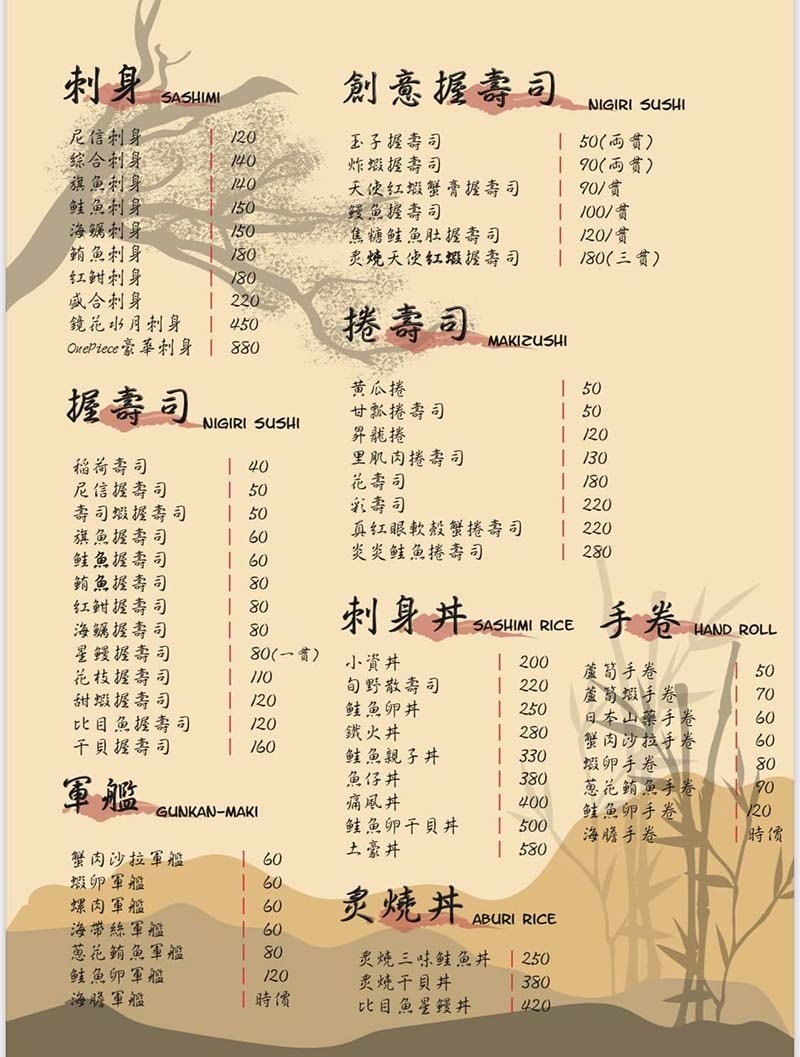 刺身 SASHIMI
尼信刺身 | 120
綜合刺身 | 140
旗魚刺身 | 140
鮭魚刺身 | 150
海鱺刺身 | 150
鮪魚刺身 | 180
紅魽刺身 | 180
盛合刺身 | 220
鏡花水月刺身 | 450
OnePiece豪華刺身 | 880
握壽司 NIGIRI SUSHI
稻荷壽司 | 40
尼信握壽司 | 50
壽司蝦握壽司 | 50
旗魚握壽司 | 60
鮭魚握壽司 | 60
鮪魚握壽司 | 80
紅魽握壽司 | 80
海鱺握壽司 | 80
星鰻握壽司 | 80(一貫)
花枝握壽司 | 110
甜蝦握壽司 | 120
比目魚握壽司 | 120
干貝握壽司 | 160
軍艦 GUNKAN-MAKI
蟹肉沙拉軍艦 | 60
蝦卵軍艦 | 60
螺肉軍艦 | 60
海帶絲軍艦 | 60
蔥花鮪魚軍艦 | 80
鮭魚卵軍艦 | 120
海膽軍艦 | 時價
創意握壽司 NIGIRI SUSHI
玉子握壽司 | 50(両貫)
炸蝦握壽司 | 90(両貫)
天使紅蝦蟹膏握壽司 | 90/貫
鰻魚握壽司 | 100/貫
焦糖鮭魚肚握壽司 | 120/貫
炙燒天使紅蝦握壽司 | 180(三貫)
捲壽司 MAKIZUSHI
黃瓜捲 | 50
甘瓢捲壽司 | 50
昇龍捲 | 120
里肌肉捲壽司 | 130
花壽司 | 180
彩壽司 | 220
真紅眼軟殼蟹捲壽司 | 220
炎炎鮭魚捲壽司 | 280
刺身丼 SASHIMI RICE
小資丼 | 200
旬野散壽司 | 220
鮭魚卵丼 | 250
鐵火丼 | 280
鮭魚親子丼 | 330
魚仔丼 | 380
痛風丼 | 400
鮭魚卵干貝丼 | 500
土豪丼 | 580
手卷 HAND ROLL
蘆筍手卷 | 50
蘆筍蝦手卷 | 70
日本山藥手卷 | 60
蟹肉沙拉手卷 | 60
蝦卵手卷 | 80
蔥花鮪魚手卷 | 90
鮭魚卵手卷 | 120
海膽手卷 | 時價
炙燒丼 ABURI RICE
炙燒三味鮭魚丼 | 250
炙燒干貝丼 | 380
比目魚星鰻丼 | 420